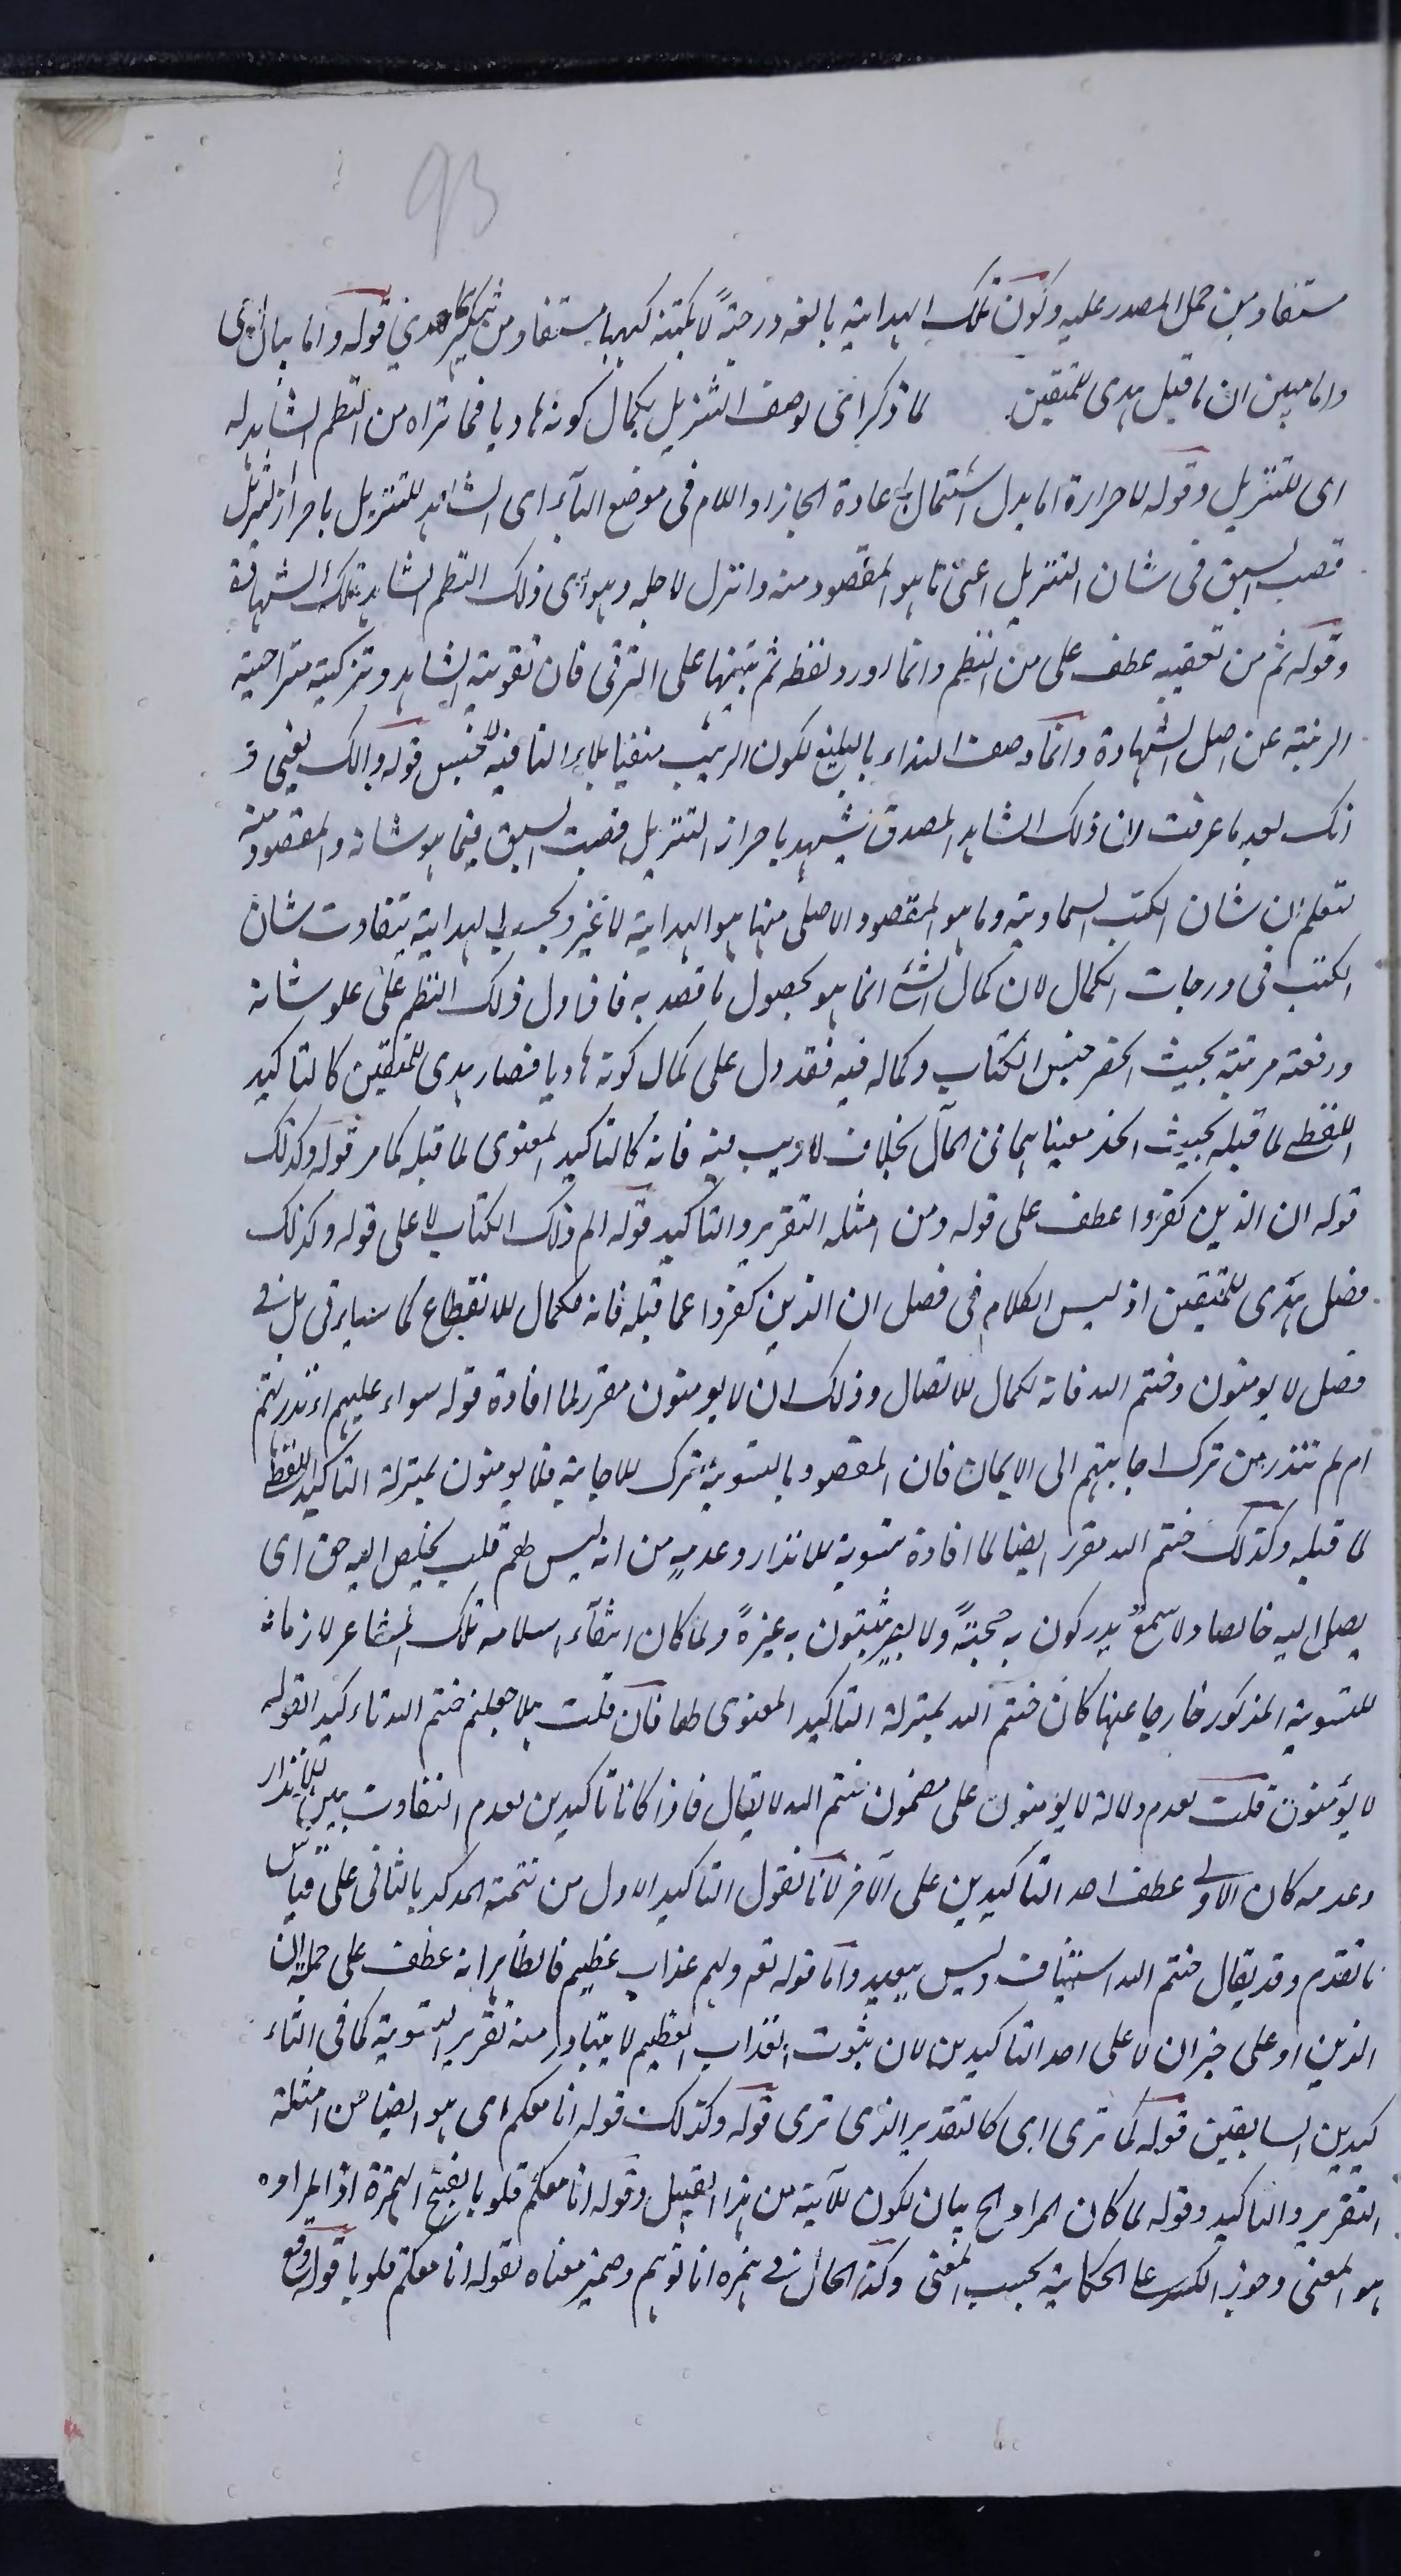 93
مستفاد من حمل المصدر عليه وكون تلك الهداية بالغه درجة لا يكتنه كنهها مستفاد من تنكير هدي قوله واما بيان اى
واما يبين ان ما قبل هدى للمتقين لما ذكر اى لوصف التنزيل بكمال كونه هاديا فما تراه من النظم الشاهد له
اى للتنزيل وقوله لاحرازه اما بدل اشتمال باعادة الجار او اللام فى موضع الباء اى الشاهد للتنزيل باحراز التنزيل
قصب السبق فى شان التنزيل اعنى ما هو المقصود منه وانزل لاجله وهو اى ذلك النظم الشاهد بتلك الشهادة
وقوله ثم من تعقيبه عطف على من النظم وانما اورد لفظه ثم تنبيها على الترقى فان تقوية الشاهد وتزكيته متراخية
الرتبة عن اصل الشهادة وانما وصف النداء بالبليغ لكون الريب منفيا بلاء النافية للجنس قوله والك يعنى و
انك بعد ما عرفت لان ذلك الشاهد المصدق يشهد باحراز التنزيل قصب السبق فيما هو شانه والمقصود منه
لتعلم ان شان الكتب السماوية وما هو المقصود الاصلى منها هو الهداية لا غير وبحسب الهداية يتفاوت شان
الكتب فى درجات الكمال لان كمال الشئ انما هو بحصول ما قصد به فاذا دل ذلك النظم على علو شانه
ورفعة مرتبته بحيث انحصر جنس الكتاب وكماله فيه فقد دل على كمال كونه هاديا فصار هدى للمتقين كالتاكيد
اللفظى لما قبله بحيث اتحد معنياهما فى المآل بخلاف لا ريب فيه فانه كالتاكيد المعنوى لما قبله كما مر قوله وكذلك
قوله ان الذين كفروا عطف على قوله ومن امثله التقرير والتاكيد قوله الم ذلك الكتاب لا على قوله وكذلك
فصل هدى للمتقين اذ ليس الكلام فى فصل ان الذين كفروا عما قبله فانه لكمال الانقطاع كما سياتى بل فى
فصل لا يومنون وختم الله فانه لكمال الاتصال وذلك ان لا يومنون مقرر لما افاده قوله سواء عليهم ءانذرتهم
ام لم تنذر من ترك اجابتهم الى الايمان فان المقصود بالتسوية ترك الاجابة فلا يومنون بمنزلة التاكيد اللفظى
لما قبله وكذلك ختم الله مقرر ايضا لما افاده تسوية الانذار وعدمه من انه ليس لهم قلب يخلص اليه حق اى
يصل اليه خالصا ولا سمع يدركون به حجة ولا بصر يثبتون به عبرة ولما كان انتفاء سلامه تلك المشاعر لازما
للتسوية المذكور خارجا عنها كان ختم الله بمنزلة التاكيد المعنوى لها فان قلت هلا جعلتم ختم الله تاءكيدا لقوله
لا يؤمنون قلت لعدم دلالة لا يومنون على مضمون ختم الله لا يقال فاذا كانا تاكيدين لعدم التفاوت بين الانذار
وعدمه كان الاولى عطف احد التاكيدين على الآخر لانا نقول التاكيد الاول من تتمة المؤكد بالثانى على قياس
ما تقدم وقد يقال ختم الله استيناف وليس ببعيد واما قوله تع ولهم عذاب عظيم فالظاهر انه عطف على جملة ان
الذين او على خبر ان لا على احد التاكيدين لان ثبوت العذاب العظيم لا يتبادر منه تقرير التسوية كما فى التاء
كيدين السابقين قوله كما ترى اى كالتقدير الذى ترى قوله وكذلك قوله انا معكم اى هو ايضا من امثلة
التقرير والتاكيد وقوله لما كان المراد الخ بيان لكون الآية من هذا القبيل وقوله انا معكم قلوبا بفتح الهمزة اذ المراد
هو المعنى وجوز الكسر على الحكاية بحسب المعنى وكذا الحال فى همزه انا نوهم وضمير معناه لقوله انا معكم قلوبا قوله وقع